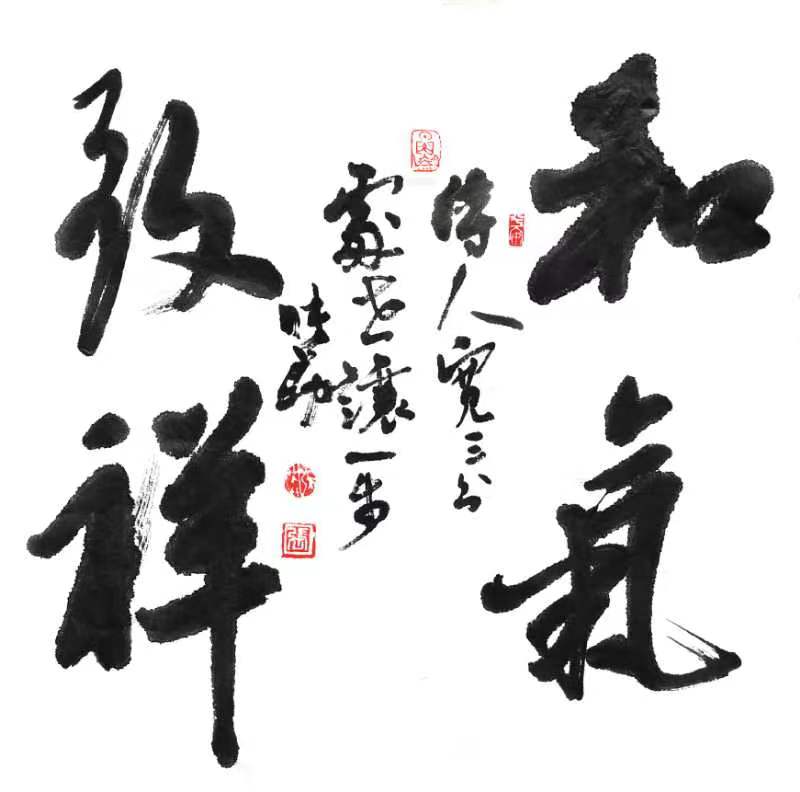 和氣
致祥
待人寬三分
處世讓一步
張